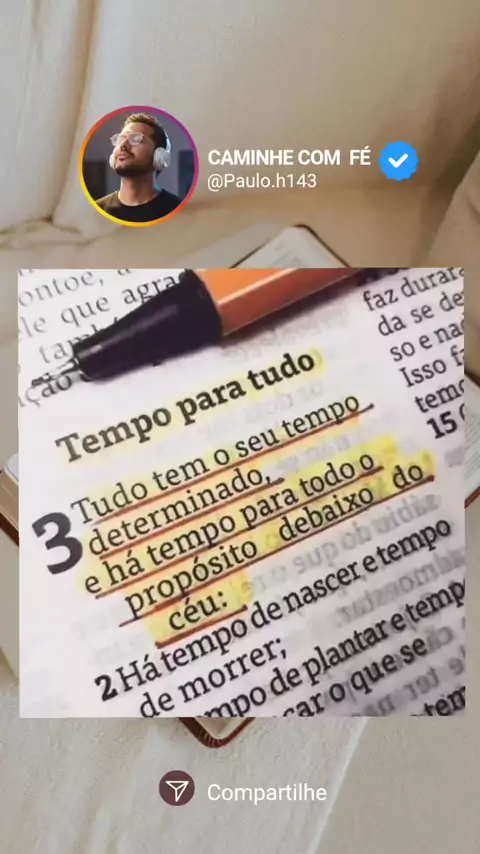 CAMINHE COM FÉ
@Paulo.h143
ontoe, a
ele que agra
também
ação
faz durar
da se de
so e na
Isso f
temo
15
Tempo para tudo
3 Tudo tem o seu tempo
determinado,
e há tempo para todo o
propósito debaixo do
céu:
2 Há tempo de nascer e tempo
de morrer;
mpo de plantar e temp
car o que se
tem
Compartilhe